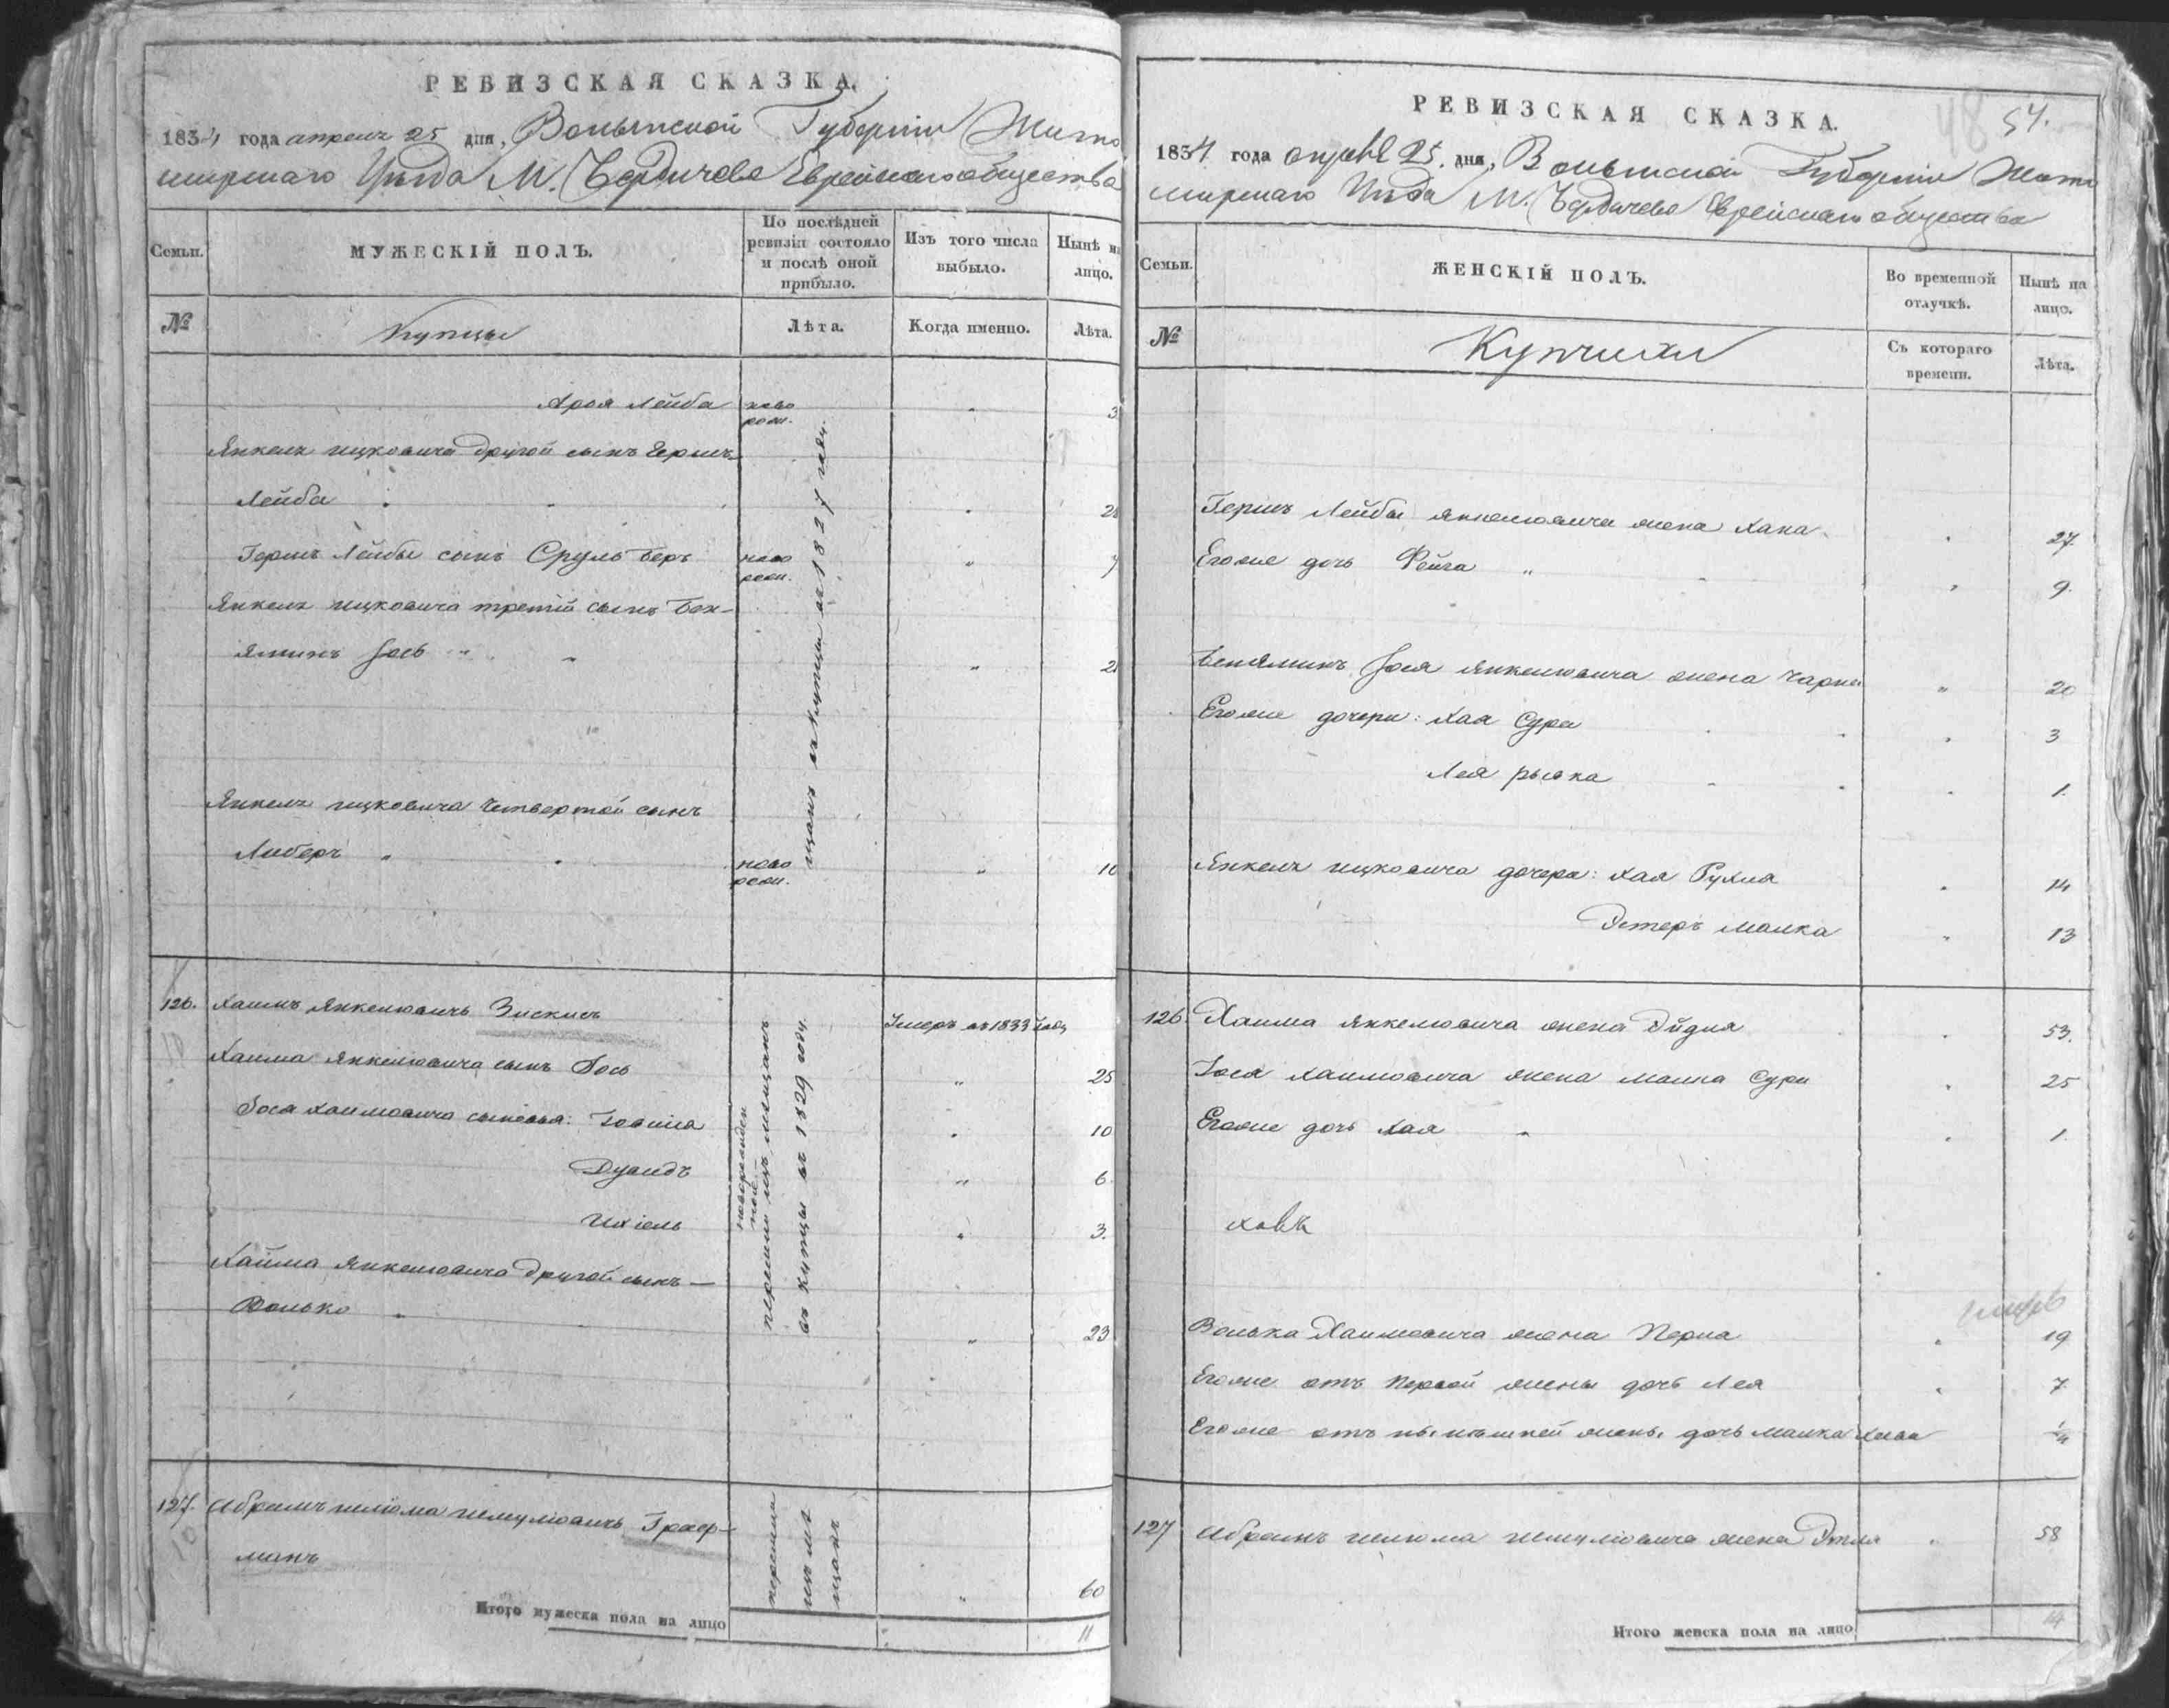 РЕВИЗСКАЯ СКАЗКА.
1834 года апреля 25 дня, Волынской Губерніи Жито
мирскаго Уѣзда М. Бердичева Еврейскаго общества
Семьи.
МУЖЕСКІЙ ПОЛЪ.
По послѣдней ревизіи состояло и послѣ оной прибыло.
Изъ того числа выбыло.
Нынѣ на лицо.
№
Купцы
Лѣта.
Когда именно.
Лѣта.
Арон Лейба ново рож. " 3
Янкеля ицковича другой сынъ Гершъ
Лейба " 2
Гершъ Лейбы сынъ Сруль Беръ ново рож. " 7
Янкеля ицковича третій сынъ Бен-
яминъ Іось " 2
Янкеля ицковича четвертой сынъ
Либеръ " ново рож. " 10
щанъ въ купцы въ 1827 году.
126. Хаимъ Янкелювичъ Зискисъ Умеръ въ 1833 году
Хаима Янкелювича сынъ Іось " 25
Іося Хаимовича сыновья: 10
Дувидъ " 6.
Ихіель " 3.
новорожден ной
перешли изъ мѣщанъ
въ купцы въ 1829 году.
Хаима Янкелювича другой сынъ —
Волько " 23
127. Абрамъ шліома шмулювичъ Граф-
манъ " 60
перешли
изъ мѣ
щанъ
Итого мужеска пола на лицо 11
РЕВИЗСКАЯ СКАЗКА.
48 54.
1834 года апрѣля 25. дня, Волынской Губерніи Жито
мирскаго Уѣзда М. Бердичева Еврейскаго общества
Семьи.
ЖЕНСКІЙ ПОЛЪ.
Во временной отлучкѣ.
Нынѣ на лицо.
№
Купчихи
Съ котораго времени.
Лѣта.
Гершъ Лейбы янкелювича жена Хана " 27.
Егоже дочь Фейга " 9.
Беняминъ Іося янкелювича жена Чарна " 20
Егоже дочери: Хая Сура " 3
Лея рывка " 1.
Янкеля ицковича дочери: Хая Рухля " 14
Эстеръ малка " 13
126. Хаима янкелювича жена Эйдля " 53.
Іося хаимовича жена малка Сура " 25
Егоже дочь Хая " 1.
ховъ
Волька Хаимовича жена Перла " 19
Егоже отъ первой жены дочь Лея " 7.
Егоже отъ нынѣшней жены дочь малка 1/4
127 Абрамъ шлюма шмулювича жена Этля " 58
Итого женска пола на лицо 14